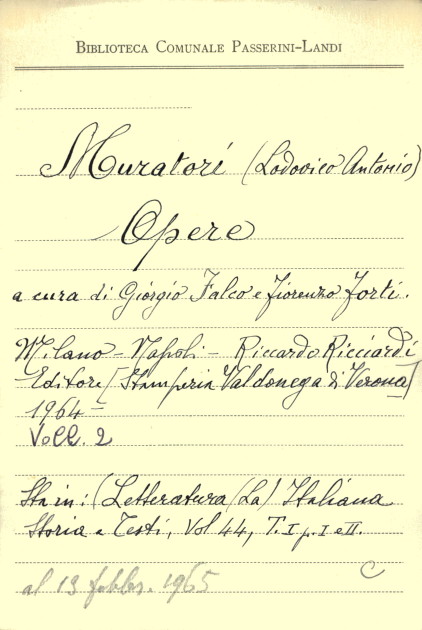 BIBLIOTECA COMUNALE PASSERINI-LANDI
Muratori (Lodovico Antonio)
Opere
a cura di Giorgio Falco e Fiorenzo Forti.
Milano - Napoli - Riccardo Ricciardi
Editore [Stamperia Valdonega di Verona]
1964 -
Voll. 2
Sta in: (Letteratura (La) Italiana
Storia e Testi, Vol 44, T. I p. I e II.
C
al 13 febbr. 1965